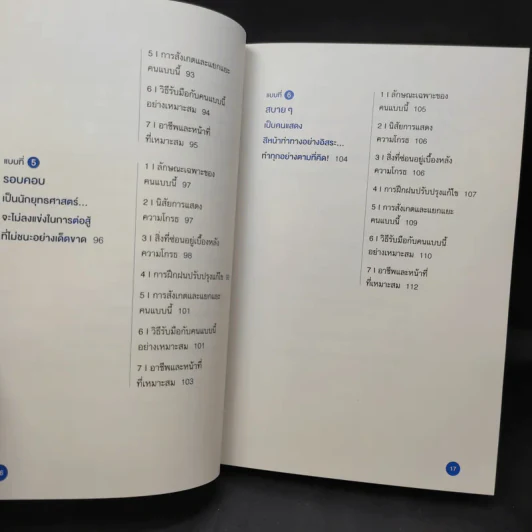 5 | การสังเกตและแยกแยะ
คนแบบนี้ 93
6 | วิธีรับมือกับคนแบบนี้
อย่างเหมาะสม 94
7 | อาชีพและหน้าที่
ที่เหมาะสม 95
แบบที่ 5
รอบคอบ
เป็นนักยุทธศาสตร์...
จะไม่ลงแข่งในการต่อสู้
ที่ไม่ชนะอย่างเด็ดขาด 96
1 | ลักษณะเฉพาะของ
คนแบบนี้ 97
2 | นิสัยการแสดง
ความโกรธ 97
3 | สิ่งที่ซ่อนอยู่เบื้องหลัง
ความโกรธ 98
4 | การฝึกฝนปรับปรุงแก้ไข
5 | การสังเกตและแยกแยะ
คนแบบนี้ 101
6 | วิธีรับมือกับคนแบบนี้
อย่างเหมาะสม 101
7 | อาชีพและหน้าที่
ที่เหมาะสม 103
แบบที่ 6
สบาย ๆ
เป็นคนแสดง
สีหน้าท่าทางอย่างอิสระ...
ทำทุกอย่างตามที่คิด! 104
1 | ลักษณะเฉพาะของ
คนแบบนี้ 105
2 | นิสัยการแสดง
ความโกรธ 106
3 | สิ่งที่ซ่อนอยู่เบื้องหลัง
ความโกรธ 106
4 | การฝึกฝนปรับปรุงแก้ไข 107
5 | การสังเกตและแยกแยะ
คนแบบนี้ 109
6 | วิธีรับมือกับคนแบบนี้
อย่างเหมาะสม 110
7 | อาชีพและหน้าที่
ที่เหมาะสม 112
17